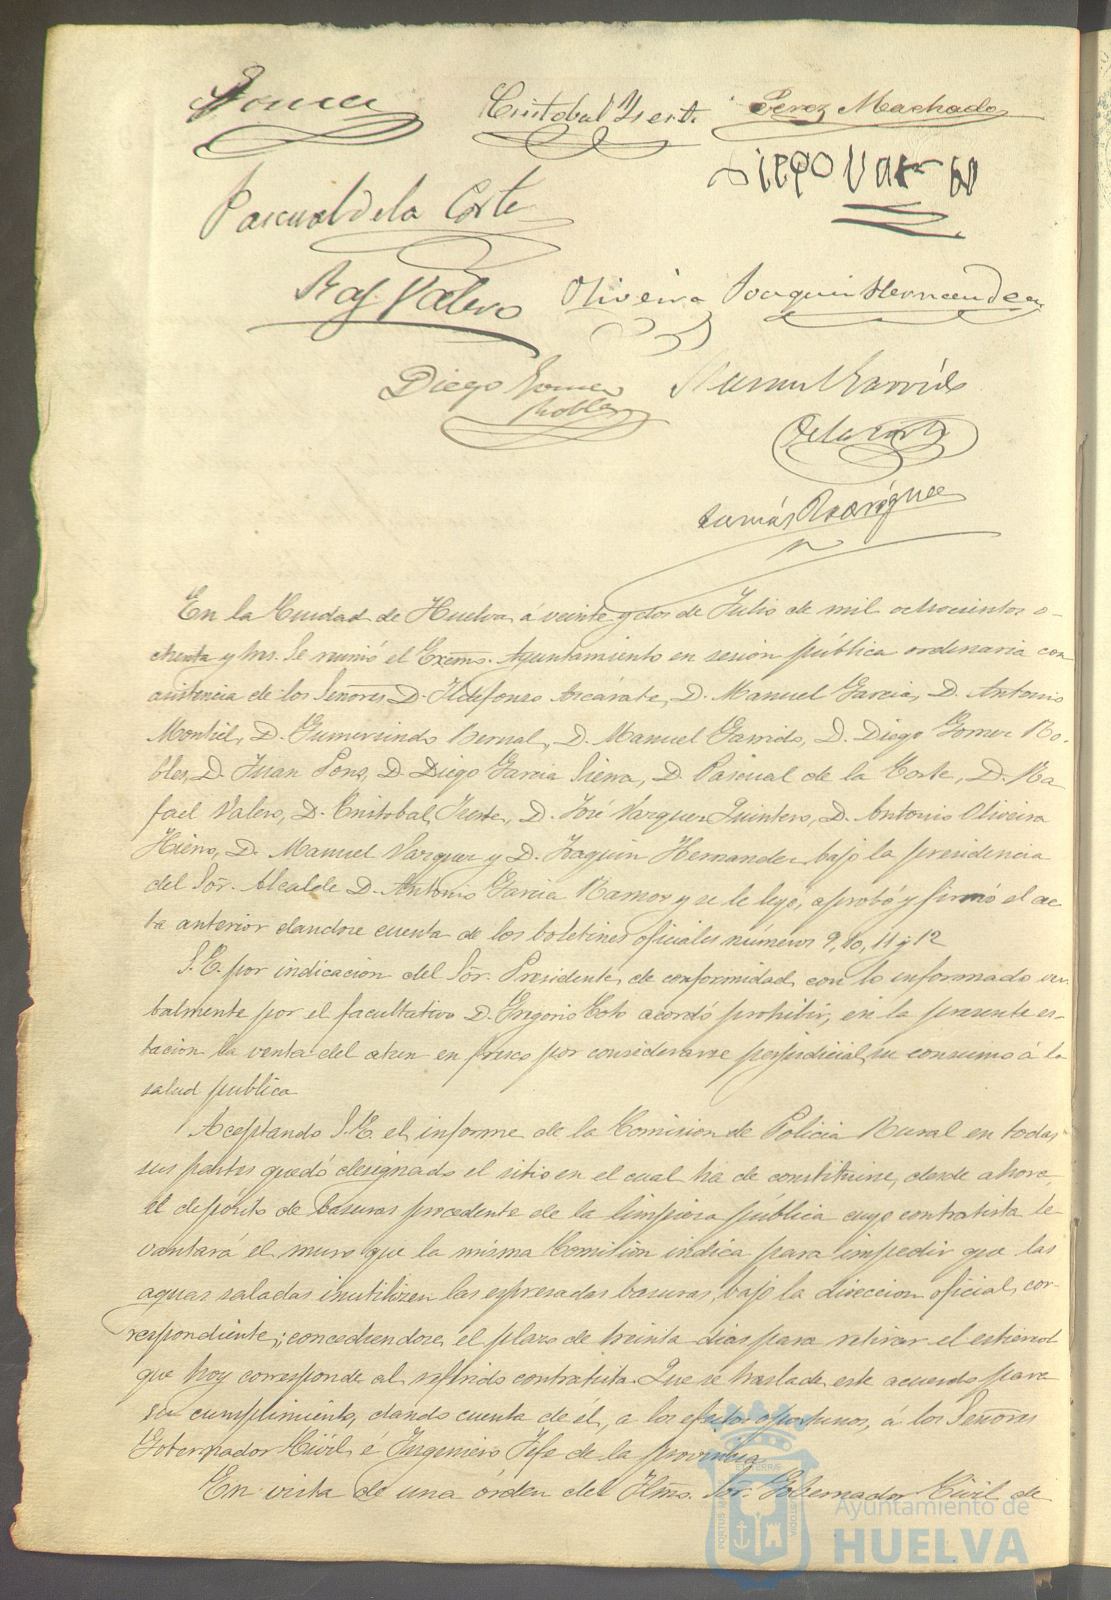 Garcia
Cristobal Yzert. Perez Machado
Diego Var
Pascual de la Corte
Raf. Valero Oliveira Joaquin Hernandez
Diego Gomez Manuel Garrido
Robles
De la Corte
Tomás Rodríguez
En la Ciudad de Huelva á veinte y dos de Julio de mil ochocientos o-
chenta y tres. Se reunió el Excmo. Ayuntamiento en sesion pública ordinaria con
asistencia de los Señores D. Ildefonso Azcárate, D. Manuel Garcia, D. Antonio
Montiel, D. Gumersindo Bernal, D. Manuel Garrido, D. Diego Gomez Ro-
bles, D. Juan Pons, D. Diego Garcia Sierra, D. Pascual de la Corte, D. Ra-
fael Valero, D. Cristobal D. José Vazquez Quintero, D. Antonio Oliveira
Hierro, D. Manuel Vazquez y D. Joaquin Hernandez bajo la presidencia
del Sor. Alcalde D. Antonio Garcia Ramos y se le leyó, aprobó y firmó el ac-
ta anterior dandose cuenta de los boletines oficiales números 9, 10, 11 y 12
S. E. por indicacion del Sor. Presidente, de conformidad con lo informado ver-
balmente por el facultativo D. Gregorio Coto acordó prohibir, en la presente es-
tacion la venta del atun en fresco por considerarse perjudicial su consumo á la
salud publica
Aceptando S. E. el informe de la Comision de Policia Rural en todas
sus partes quedó designado el sitio en el cual ha de constituirse, desde ahora,
el depósito de basuras procedente de la limpieza pública cuyo contratista le-
vantará el muro que la misma Comision indica para impedir que las
aguas saladas inutilizen las espresadas basuras, bajo la direccion oficial, cor-
respondiente; concediendose el plazo de treinta dias para retirar el estiercol
que hoy corresponde al referido contratista. Que se traslade este acuerdo para
su cumplimiento, dando cuenta de el, a los efectos oportunos, á los Señores
Gobernador Civil é Ingeniero Jefe de la provincia
En vista de una órden del Iltmo. Sor. Gobernador Civil de
Ayuntamiento de
HUELVA